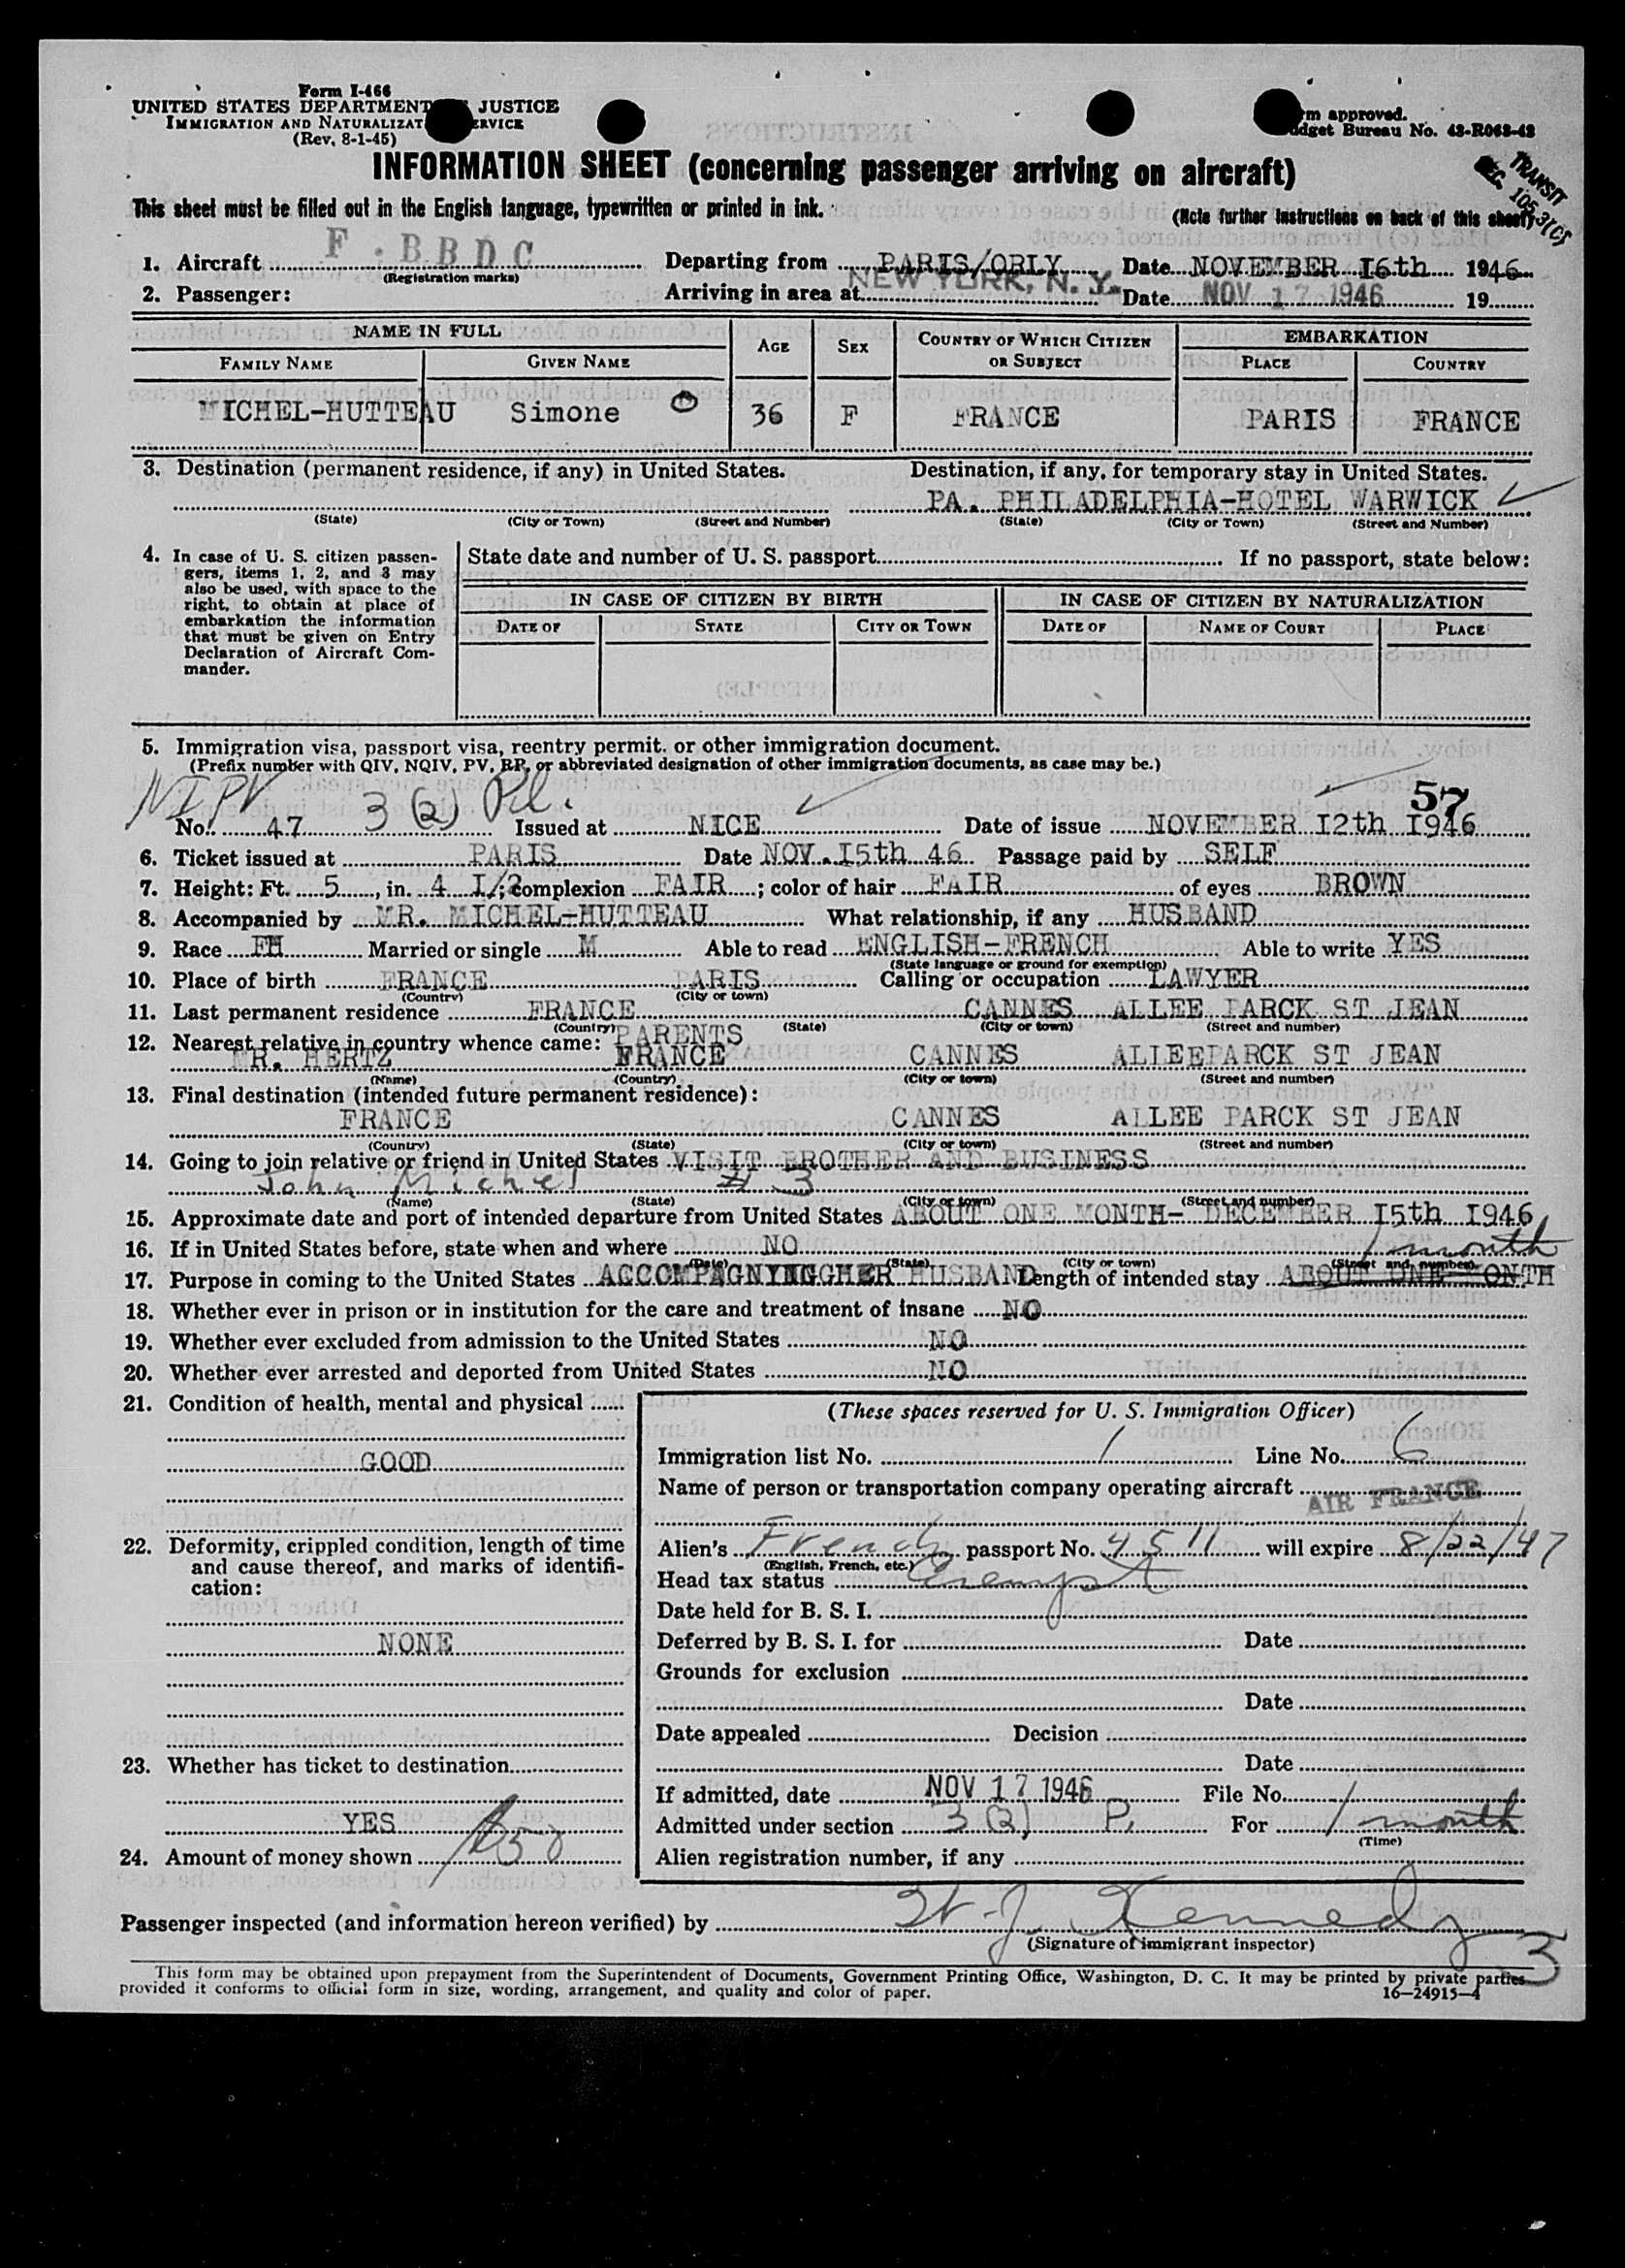 Form I-466
UNITED STATES DEPARTMENT JUSTICE
IMMIGRATION AND NATURALIZAT ERVICE
(Rev. 8-1-45)
rm approved.
dget Bureau No. 43-R063-43
INFORMATION SHEET (concerning passenger arriving on aircraft)
TRANSIT
This sheet must be filled out in the English language, typewritten or printed in ink. (Note further instructions on back of this sheet)
1. Aircraft F. BBDC Departing from PARIS/ORLY Date NOVEMBER I6th 1946
(Registration marks)
2. Passenger: Arriving in area at NEW YORK, N. Y. Date NOV 17 1946 19
NAME IN FULL AGE SEX COUNTRY OF WHICH CITIZEN OR SUBJECT EMBARKATION
FAMILY NAME GIVEN NAME PLACE COUNTRY
MICHEL-HUTTEAU Simone O 36 F FRANCE PARIS FRANCE
3. Destination (permanent residence, if any) in United States. Destination, if any, for temporary stay in United States.
PA. PHILADELPHIA-HOTEL WARWICK
(State) (City or Town) (Street and Number) (State) (City or Town) (Street and Number)
4. In case of U. S. citizen passen-
gers, items 1, 2, and 3 may
also be used, with space to the
right, to obtain at place of
embarkation the information
that must be given on Entry
Declaration of Aircraft Com-
mander.
State date and number of U. S. passport If no passport, state below:
IN CASE OF CITIZEN BY BIRTH IN CASE OF CITIZEN BY NATURALIZATION
DATE OF STATE CITY OR TOWN DATE OF NAME OF COURT PLACE
5. Immigration visa, passport visa, reentry permit, or other immigration document.
(Prefix number with QIV, NQIV, PV, RP, or abbreviated designation of other immigration documents, as case may be.)
NIPV 3 (2) 57
No. 47 Issued at NICE Date of issue NOVEMBER I2th I946
6. Ticket issued at PARIS Date NOV. I5th 46 Passage paid by SELF
7. Height: Ft. 5, in. 4 I/2; complexion FAIR; color of hair FAIR of eyes BROWN
8. Accompanied by MR. MICHEL-HUTTEAU What relationship, if any HUSBAND
9. Race FH Married or single M Able to read ENGLISH-FRENCH Able to write YES
(State language or ground for exemption)
10. Place of birth FRANCE PARIS Calling or occupation LAWYER
(Country) (City or town)
11. Last permanent residence FRANCE CANNES ALLEE PARCK ST JEAN
(Country) (State) (City or town) (Street and number)
12. Nearest relative in country whence came: PARENTS
MR. HERTZ FRANCE CANNES ALLEEPARCK ST JEAN
(Name) (Country) (City or town) (Street and number)
13. Final destination (intended future permanent residence):
FRANCE CANNES ALLEE PARCK ST JEAN
(Country) (State) (City or town) (Street and number)
14. Going to join relative or friend in United States VISIT BROTHER AND BUSINESS
John Michel # 3
(Name) (State) (City or town) (Street and number)
15. Approximate date and port of intended departure from United States ABOUT ONE MONTH- DECEMBER I5th I946
16. If in United States before, state when and where NO 1 month
(Date) (State) (City or town) (Street and number)
17. Purpose in coming to the United States ACCOMPAGNYINGGHER HUSBAND Length of intended stay ABOUT ONE MONTH
18. Whether ever in prison or in institution for the care and treatment of insane NO
19. Whether ever excluded from admission to the United States NO
20. Whether ever arrested and deported from United States NO
21. Condition of health, mental and physical
GOOD
22. Deformity, crippled condition, length of time
and cause thereof, and marks of identifi-
cation:
NONE
23. Whether has ticket to destination
YES
24. Amount of money shown 150
(These spaces reserved for U. S. Immigration Officer)
Immigration list No. 1 Line No. 6
Name of person or transportation company operating aircraft AIR FRANCE
Alien's French passport No. 4511 will expire 8/22/47
(English, French, etc.)
Head tax status Exempt
Date held for B. S. I.
Deferred by B. S. I. for Date
Grounds for exclusion
Date
Date appealed Decision
Date
If admitted, date NOV 17 1946 File No.
Admitted under section 3 (2) P. For 1 month
(Time)
Alien registration number, if any
Passenger inspected (and information hereon verified) by W. J. Kennedy
(Signature of immigrant inspector)
3
This form may be obtained upon prepayment from the Superintendent of Documents, Government Printing Office, Washington, D. C. It may be printed by private parties
provided it conforms to official form in size, wording, arrangement, and quality and color of paper. 16—24915-4